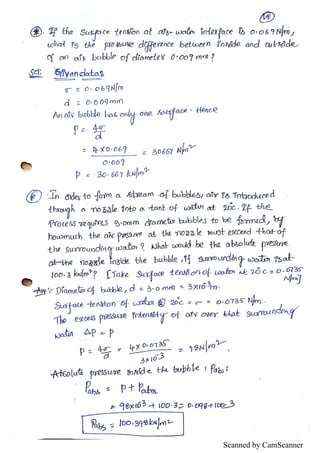 59
If the surface tension at air-water interface is 0.069N/m,
what is the pressure difference between inside and outside
of an air bubble of diameter 0.009 mm?
Sol: Given datas
σ = 0.069N/m
d = 0.009mm
An air bubble has only one surface. Hence
P = 4σ/d
= 4×0.069/0.009 = 30667 N/m²
P = 30.667 kN/m²
In order to form a stream of bubbles, air is introduced
through a nozzle into a tank of water at 20c. If the
Process requires 3.0mm diameter bubbles to be formed, by
howmuch the air pressure at the nozzle must exceed that of
the surrounding water? What would be the absolute pressure
at the nozzle inside the bubble, if surrounding water is at
100.3 kN/m²? [Take surface tension of water at 20c = 0.0735 N/m]
Ans: Diameter of bubble, d = 3.0 mm = 3×10⁻³m.
Surface tension of water @ 20c = σ = 0.0735 N/m.
The excess pressure intensity of air over that surrounding
water ΔP = P
P = 4σ/d = 4×0.0735/3×10⁻³ = 98N/m².
Absolute pressure inside the bubble, Pabs:
Pabs = P + Patm
= 98×10⁻³ + 100.3 = 0.098+100.3
Pabs = 100.398kN/m²
Scanned by CamScanner